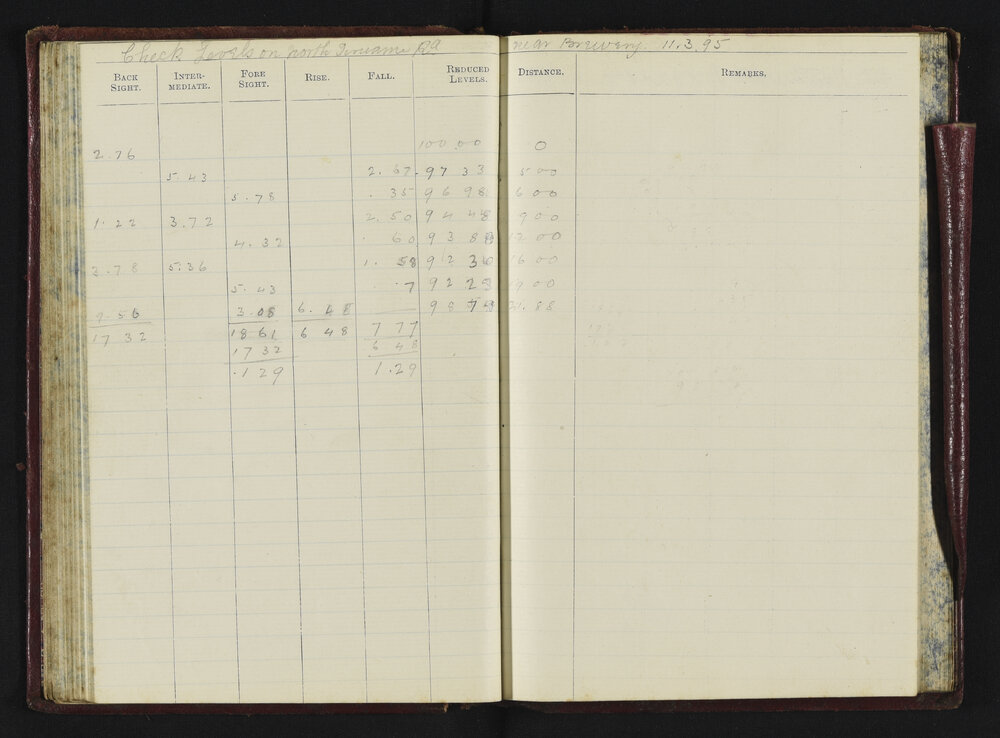 Check Levels on north Rd near Brewery 11.3.95
BACK SIGHT. INTER-MEDIATE. FORE SIGHT. RISE. FALL. REDUCED LEVELS. DISTANCE. REMARKS.
2.76 100.00 0
5.43 2.67 97 33 500
5.78 .35 96 98 600
1.22 3.72 2.50 94 48 900
4.32 .60 93 88 12 00
3.78 5.36 1.58 92 30 16 00
5.43 .7 92 23 19 00
9.56 3.08 6.48 98 71 21.88
17 32 18 61 6 48 7 77
17 32 6 48
.1 29 1.29